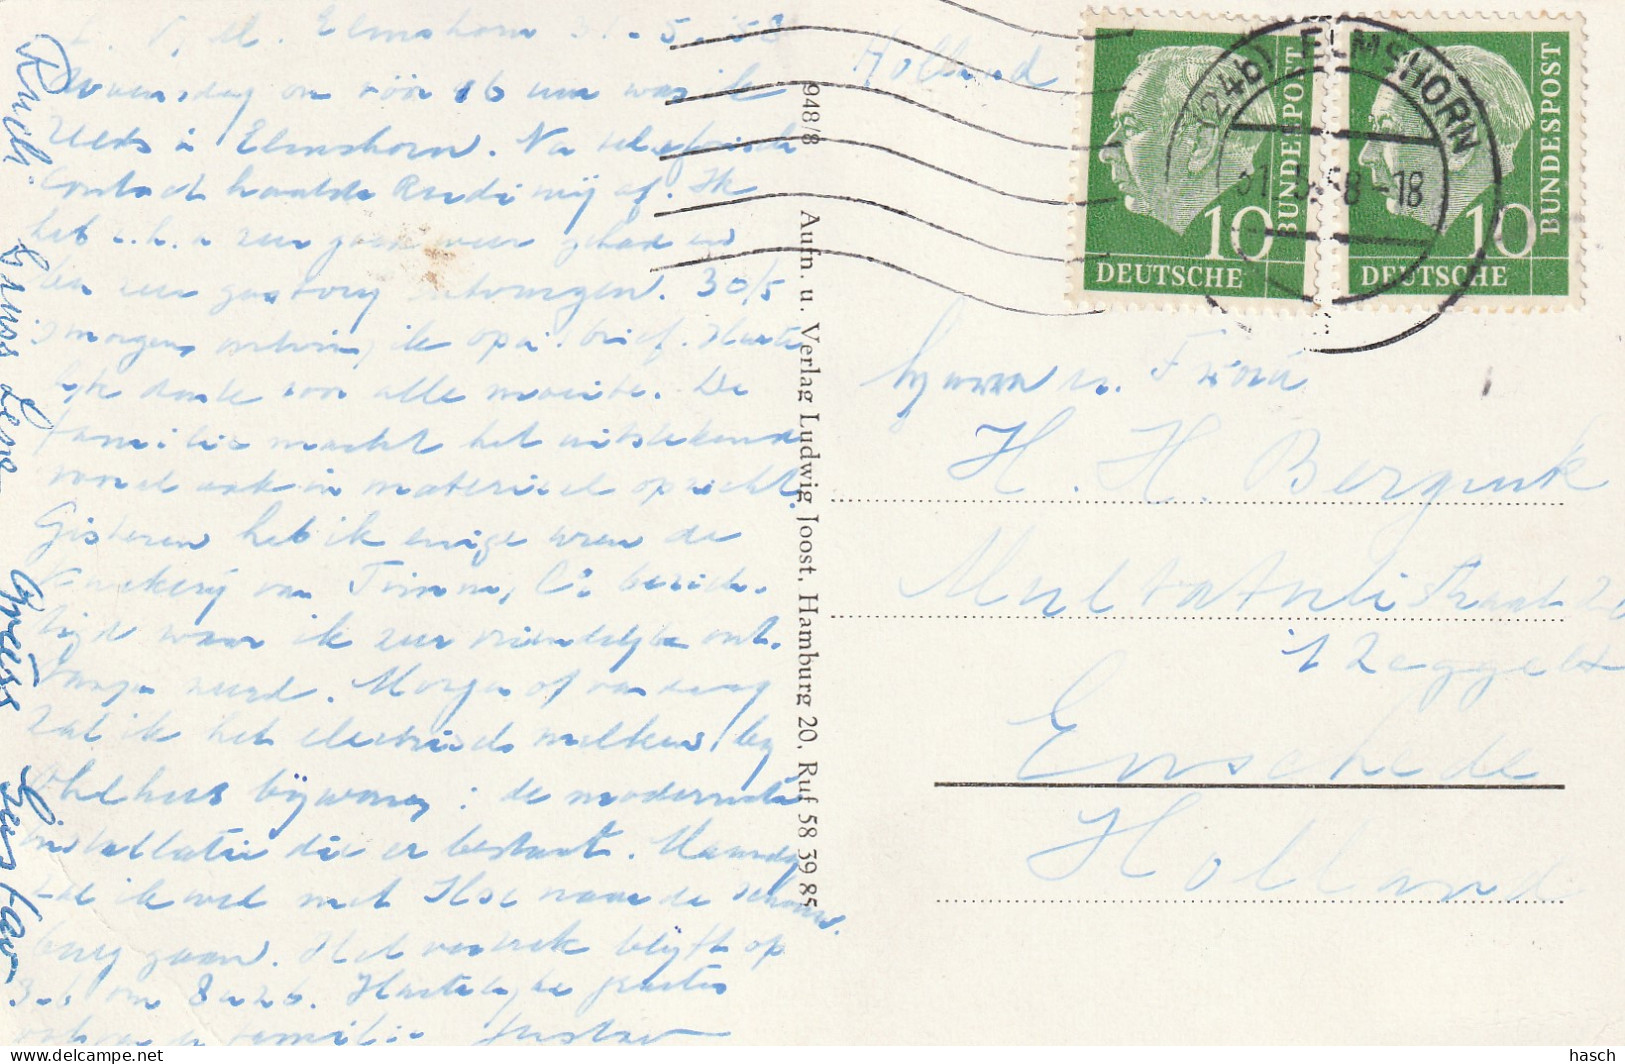 Elmshorn 31.-5.'58
Woensdag om vóór 16 uur was ik
reeds in Elmshorn. Na telefonisch
contact haalde Rudi mij af. Ik
heb zeer goed weer gehad en
ben zeer gastvrij ontvangen. 30/5
's morgens ontving ik opa's brief. Harte-
lijk dank voor alle moeite. De
familie maakt het uitstekend
vooral ook in materieel opzicht.
Gisteren heb ik enige uren de
kwekerij van Timm & Co bezich-
tigd waar ik zeer vriendelijk ont-
vangen werd. Morgen of vandaag
zal ik het electrisch melken bij
bijwonen; de modernste
installatie die er bestaat. Maandag
zal ik wel met Ilse naar de schouw-
burg gaan. Het vertrek blijft op
3-6 om 8 u 26. Hartelijke groeten
ook van de familie Gustav
Rudi
Gruss Gustav
Holland
948/8 Aufn. u. Verlag Ludwig Joost, Hamburg 20, Ruf 58 39 85
(24b) ELMSHORN
31.5.58-18
DEUTSCHE BUNDESPOST 10
DEUTSCHE BUNDESPOST 10
H. H. Bergink
Multatulistraat
't Zeggelt
Enschede
Holland
hasch